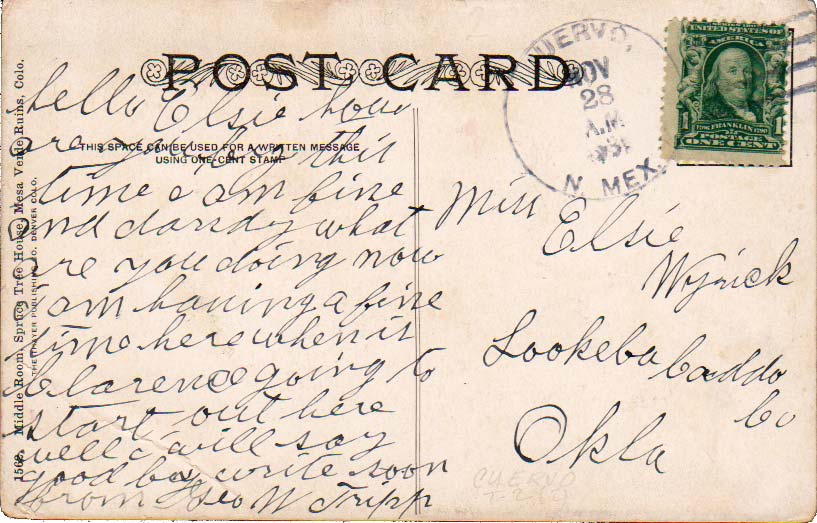 POST CARD
THIS SPACE CAN BE USED FOR A WRITTEN MESSAGE
USING ONE-CENT STAMP
hello Elsie how
are you by this
time i am fine
and dandy what
are you doing now
i am having a fine
time here when is
Clarence going to
start out here
well i will say
good by write soon
from Geo W Tripp
1562. Middle Room, Spruce Tree House, Mesa Verde Ruins, Colo.
THE THAYER PUBLISHING CO. DENVER COLO.
CUERVO,
NOV
28
A.M.
N. MEX.
UNITED STATES OF
AMERICA
1 FRANKLIN 1
POSTAGE
ONE CENT
Miss Elsie
Wyrick
Lookeba Caddo
Co
Okla
CUERVO